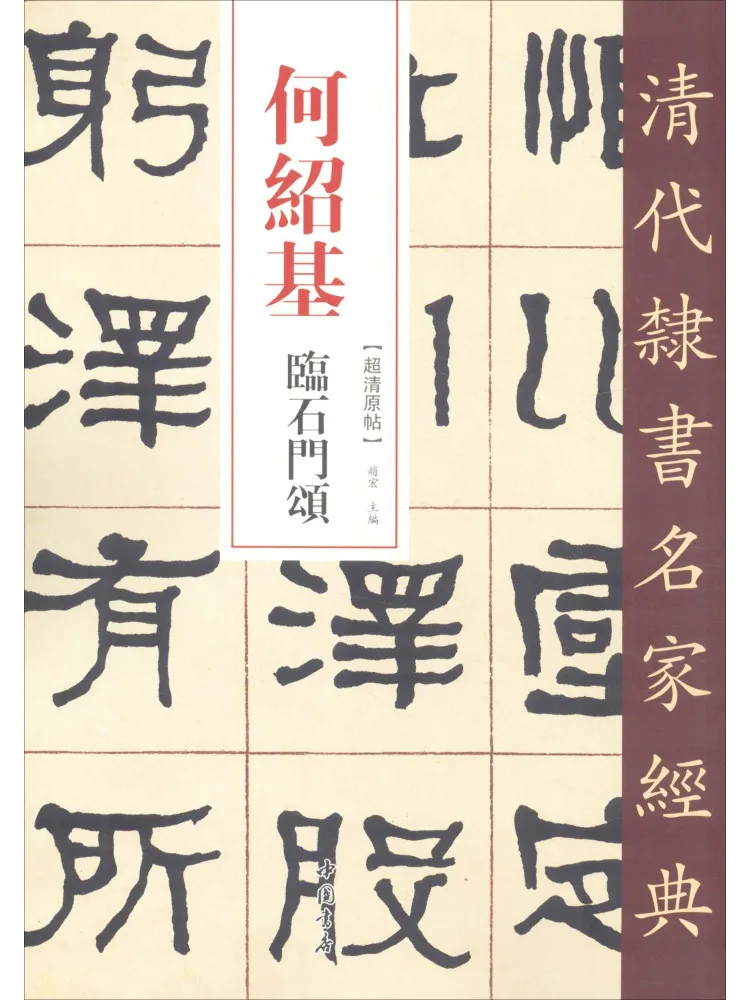 清代隸書名家經典
何紹基
臨石門頌
【超清原帖】
趙宏 主編
定
澤股
躬澤有所
中國書店